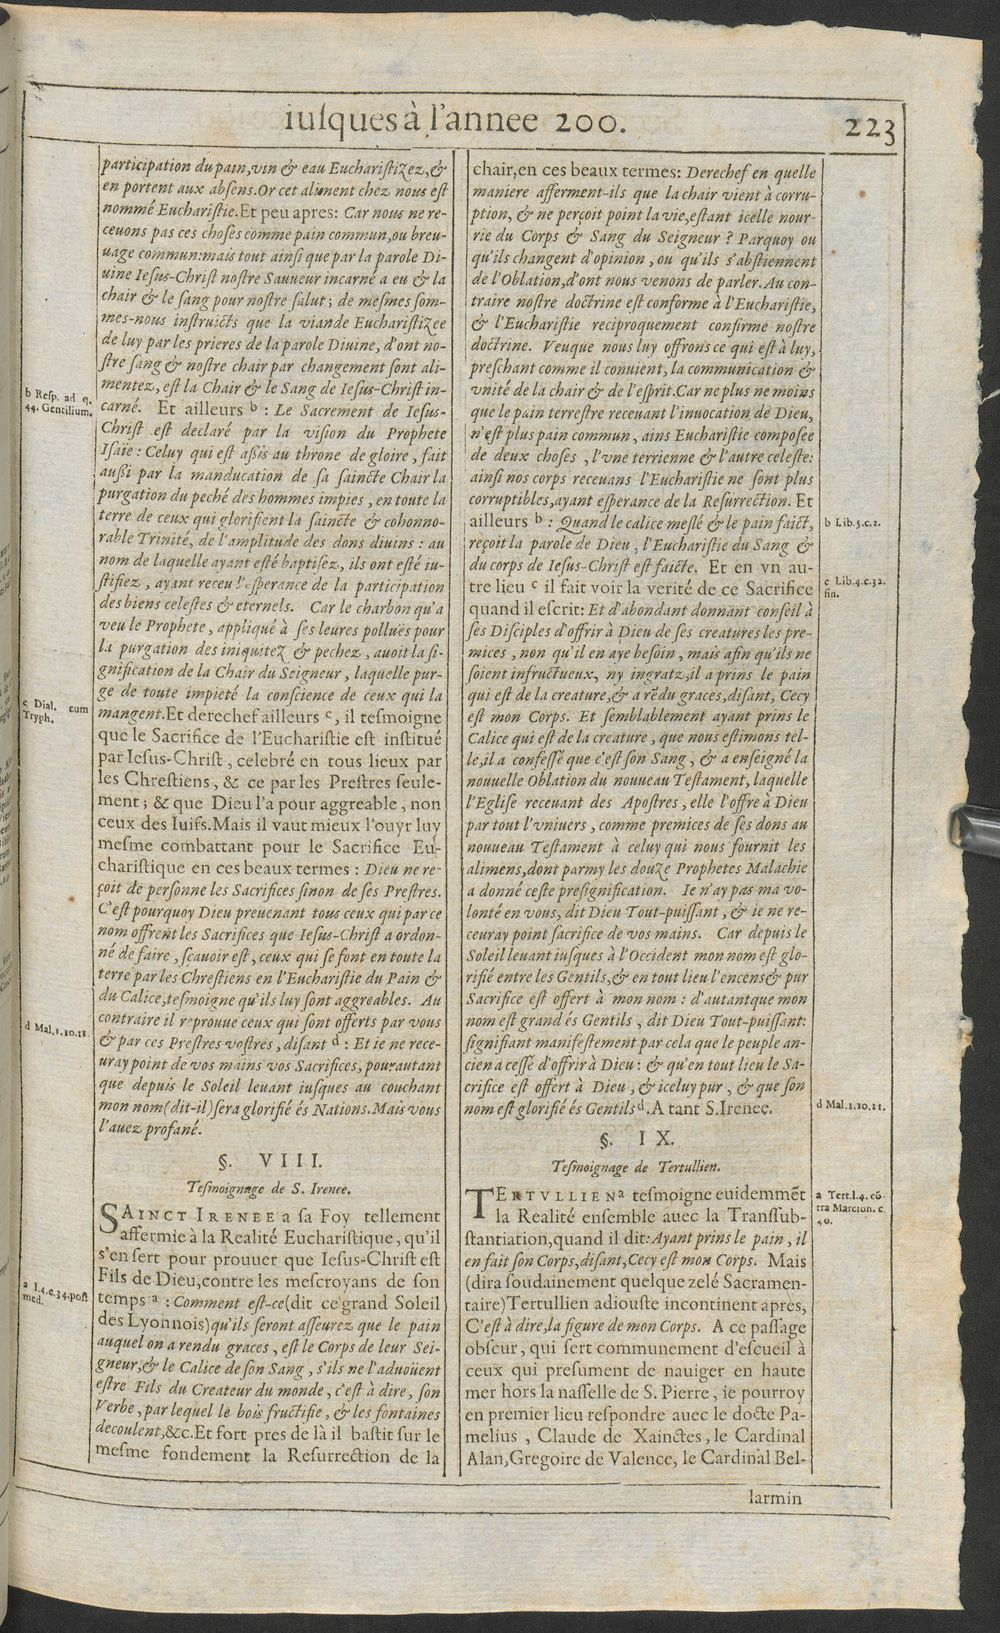 iusques à l'annee 200.
223
participation du pain, vin & eau Eucharistizez, &
en portent aux absens. Or cet aliment chez nous est
nommé Eucharistie. Et peu apres: Car nous ne re-
ceuons pas ces choses comme pain commun, ou breu-
uage commun: mais tout ainsi que par la parole Di-
uine Iesus-Christ nostre Sauueur incarné a eu & la
chair & le sang pour nostre salut; de mesmes som-
mes-nous instruicts que la viande Eucharistizee
de luy par les prieres de la parole Diuine, d'ont no-
stre sang & nostre chair par changement sont ali-
mentez, est la Chair & le Sang de Iesus-Christ in-
carné. Et ailleurs b : Le Sacrement de Iesus-
Christ est declaré par la vision du Prophete
Isaïe : Celuy qui est assis au throne de gloire, fait
aussi par la manducation de sa saincte Chair la
purgation du peché des hommes impies, en toute la
terre de ceux qui glorifient la saincte & cohonno-
rable Trinité, de l'amplitude des dons diuins : au
nom de laquelle ayant esté baptisez, ils ont esté iu-
stifiez, ayant receu l'esperance de la participation
des biens celestes & eternels. Car le charbon qu'a
veu le Prophete, appliqué à ses leures polluës pour
la purgation des iniquitez & pechez, auoit la si-
gnification de la Chair du Seigneur, laquelle pur-
ge de toute impieté la conscience de ceux qui la
mangent. Et derechef ailleurs c, il tesmoigne
que le Sacrifice de l'Eucharistie est institué
par Iesus-Christ, celebré en tous lieux par
les Chrestiens, & ce par les Prestres seule-
ment; & que Dieu l'a pour aggreable, non
ceux des Iuifs. Mais il vaut mieux l'ouyr luy
mesme combattant pour le Sacrifice Eu-
charistique en ces beaux termes : Dieu ne re-
çoit de personne les Sacrifices sinon de ses Prestres.
C'est pourquoy Dieu preuenant tous ceux qui par ce
nom offrent les Sacrifices que Iesus-Christ a ordon-
né de faire, sçauoir est, ceux qui se font en toute la
terre par les Chrestiens en l'Eucharistie du Pain &
du Calice, tesmoigne qu'ils luy sont aggreables. Au
contraire il reprouue ceux qui sont offerts par vous
& par ces Prestres vostres, disant d : Et ie ne rece-
uray point de vos mains vos Sacrifices, pourautant
que depuis le Soleil leuant iusques au couchant
mon nom (dit-il) sera glorifié és Nations. Mais vous
l'auez profané.
§. VIII.
Tesmoignage de S. Irenee.
SAINCT IRENEE a sa Foy tellement
affermie à la Realité Eucharistique, qu'il
s'en sert pour prouuer que Iesus-Christ est
Fils de Dieu, contre les mescroyans de son
temps a : Comment est-ce (dit ce grand Soleil
des Lyonnois) qu'ils seront asseurez que le pain
auquel on a rendu graces, est le Corps de leur Sei-
gneur; & le Calice de son Sang, s'ils ne l'aduoüent
estre Fils du Createur du monde, c'est à dire, son
Verbe, par lequel le bois fructifie, & les fontaines
decoulent, &c. Et fort pres de là il bastit sur le
mesme fondement la Resurrection de la
b Resp. ad q.
44. Gentilium.
c Dial. cum
Tryph.
d Mal. 1. 10. 11.
a l. 4. c. 34. post
med.
chair, en ces beaux termes: Derechef en quelle
maniere afferment-ils que la chair vient à corru-
ption, & ne perçoit point la vie, estant icelle nour-
rie du Corps & Sang du Seigneur ? Parquoy ou
qu'ils changent d'opinion, ou qu'ils s'abstiennent
de l'Oblation, d'ont nous venons de parler. Au con-
traire nostre doctrine est conforme à l'Eucharistie,
& l'Eucharistie reciproquement confirme nostre
doctrine. Veuque nous luy offrons ce qui est à luy,
preschant comme il conuient, la communication &
vnité de la chair & de l'esprit. Car ne plus ne moins
que le pain terrestre receuant l'inuocation de Dieu,
n'est plus pain commun, ains Eucharistie composee
de deux choses, l'vne terrienne & l'autre celeste:
ainsi nos corps receuans l'Eucharistie ne sont plus
corruptibles, ayant esperance de la Resurrection. Et
ailleurs b : Quand le calice meslé & le pain faict,
reçoit la parole de Dieu, l'Eucharistie du Sang &
du corps de Iesus-Christ est faicte. Et en vn au-
tre lieu c il fait voir la verité de ce Sacrifice
quand il escrit: Et d'abondant donnant conseil à
ses Disciples d'offrir à Dieu de ses creatures les pre-
mices, non qu'il en aye besoin, mais afin qu'ils ne
soient infructueux, ny ingratz, il a prins le pain
qui est de la creature, & a rēdu graces, disant, Cecy
est mon Corps. Et semblablement ayant prins le
Calice qui est de la creature, que nous estimons tel-
le, il a confessé que c'est son Sang, & a enseigné la
nouuelle Oblation du nouueau Testament, laquelle
l'Eglise receuant des Apostres, elle l'offre à Dieu
par tout l'vniuers, comme premices de ses dons au
nouueau Testament à celuy qui nous fournit les
alimens, dont parmy les douze Prophetes Malachie
a donné ceste presignification. Ie n'ay pas ma vo-
lonté en vous, dit Dieu Tout-puissant, & ie ne re-
ceuray point sacrifice de vos mains. Car depuis le
Soleil leuant iusques à l'Occident mon nom est glo-
rifié entre les Gentils, & en tout lieu l'encens & pur
Sacrifice est offert à mon nom : d'autantque mon
nom est grand és Gentils, dit Dieu Tout-puissant:
signifiant manifestement par cela que le peuple an-
cien a cessé d'offrir à Dieu : & qu'en tout lieu le Sa-
crifice est offert à Dieu, & iceluy pur, & que son
nom est glorifié és Gentils d. A tant S. Irenee.
§. IX.
Tesmoignage de Tertullien.
TERTVLLIEN a tesmoigne euidemmēt
la Realité ensemble auec la Transsub-
stantiation, quand il dit: Ayant prins le pain, il
en fait son Corps, disant, Cecy est mon Corps. Mais
(dira soudainement quelque zelé Sacramen-
taire) Tertullien adiouste incontinent apres,
C'est à dire, la figure de mon Corps. A ce passage
obscur, qui sert communement d'escueil à
ceux qui presument de nauiger en haute
mer hors la nasselle de S. Pierre, ie pourroy
en premier lieu respondre auec le docte Pa-
melius, Claude de Xainctes, le Cardinal
Alan, Gregoire de Valence, le Cardinal Bel-
larmin
b Lib. 5. c. 2.
c Lib. 4. c. 32.
fin.
d Mal. 1. 10. 11.
a Tert. l. 4. cō
tra Marcion. c.
40.